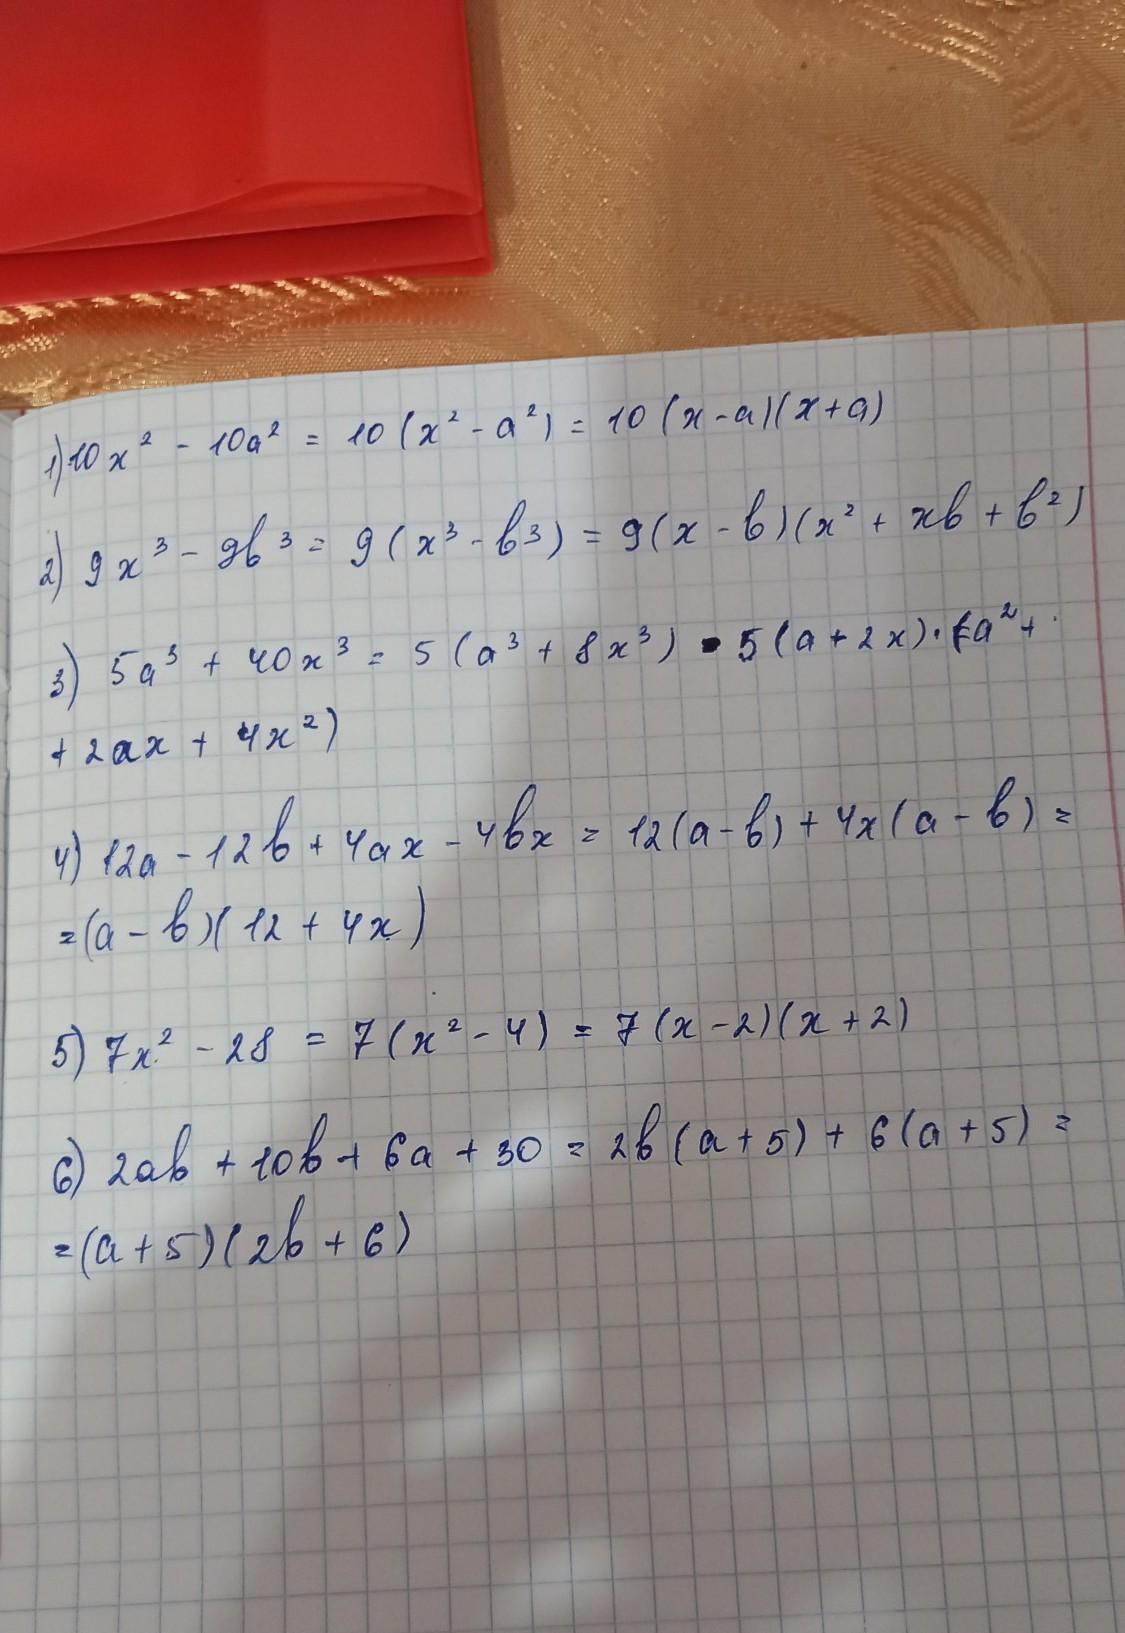 1) 10x² - 10a² = 10(x² - a²) = 10(x-a)(x+a)
2) 9x³ - 9b³ = 9(x³ - b³) = 9(x - b)(x² + xb + b²)
3) 5a³ + 40x³ = 5(a³ + 8x³) = 5(a + 2x)·(a² +
+ 2ax + 4x²)
4) 12a - 12b + 4ax - 4bx = 12(a-b) + 4x(a - b) =
=(a - b)(12 + 4x)
5) 7x² - 28 = 7(x² - 4) = 7(x-2)(x+2)
6) 2ab + 10b + 6a + 30 = 2b(a+5) + 6(a+5) =
=(a+5)(2b+6)